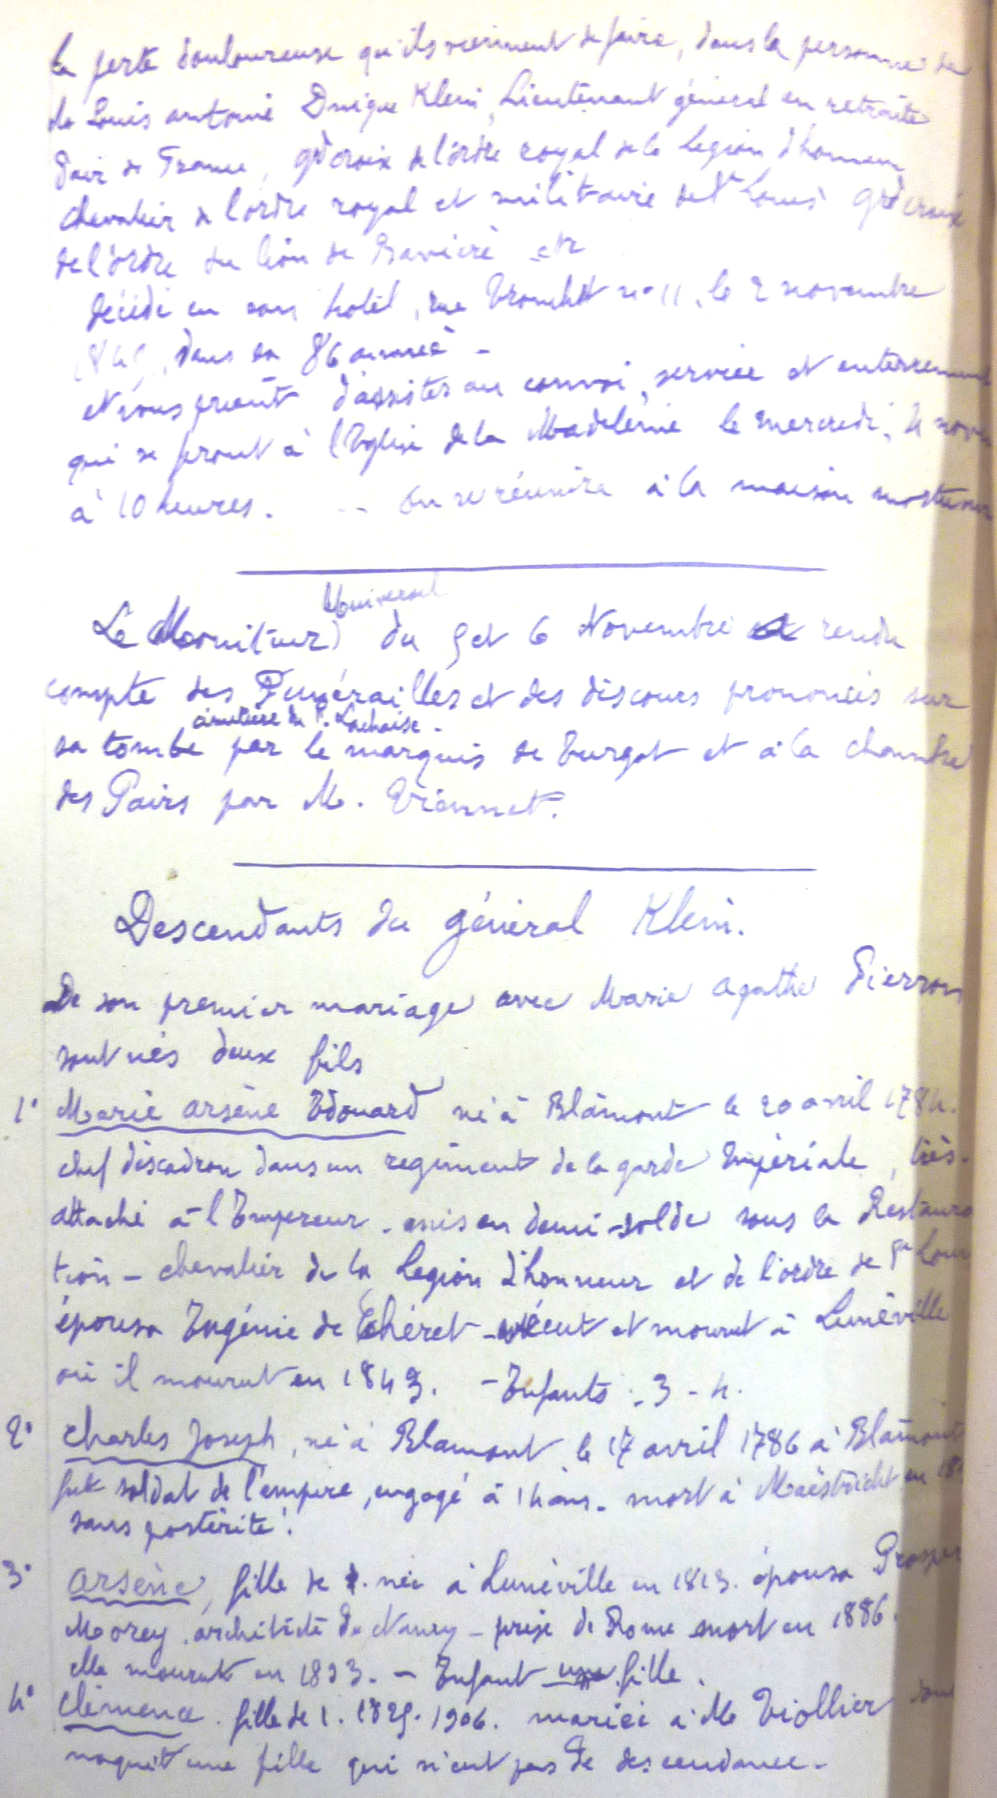 la perte douloureuse qu'ils viennent de faire, dans la personne de
de Louis antoine Dnique Klein, Lieutenant général en retraite
Pair de France, gd croix de l'ordre royal de la Legion d'honneur
chevalier de l'ordre royal et militaire de St Louis grd croix
de l'ordre du lion de Bavière etc
décédé en son hotel, rue Tronchet n° 11, le 2 novembre
dans sa 86 année -
et vous prient d'assister au convoi, service et enterrement
qui se feront à l'Eglise de la Madeleine le mercredi, 4 nov
à 10 heures. -- On se réunira à la maison mortuaire
Universel
Le Moniteur) du 5 et 6 Novembre rendu
compte des Funérailles et des discours prononcés sur
cimetière du P. Lachaise.
sa tombe par le marquis de Turgot et à la chambre
des Pairs par M. Viennet.
Descendants du général Klein.
De son premier mariage avec Marie Agathe Pierron
sont nés deux fils
1° Marie Arsène Edouard né à Blâmont le 20 avril 1784.
chef d'escadron dans un régiment de la garde Impériale, très-
attaché à l'Empereur. mis en demi-solde sous la Restaura
tion - chevalier de la Legion d'honneur et de l'ordre de St Louis
épousa Eugénie de Théret - vécut et mourut à Lunéville
où il mourut en 1843. - Enfants : 3 - 4.
2° Charles Joseph, né à Blamont le 17 avril 1786 à Blâmont
fut soldat de l'empire, engagé à 14 ans. mort à Maëstricht en 18
sans postérité.
3° Arsène, fille de 1. née à Lunéville en 1813. épousa Prosper
Morey. architecte de Nancy - prix de Rome mort en 1886.
elle mourut en 1893. - Enfant une fille.
4° Clémence. fille de 1. 1825. 1906. mariée à M Viollier dont
naquit une fille qui n'eut pas de descendance.